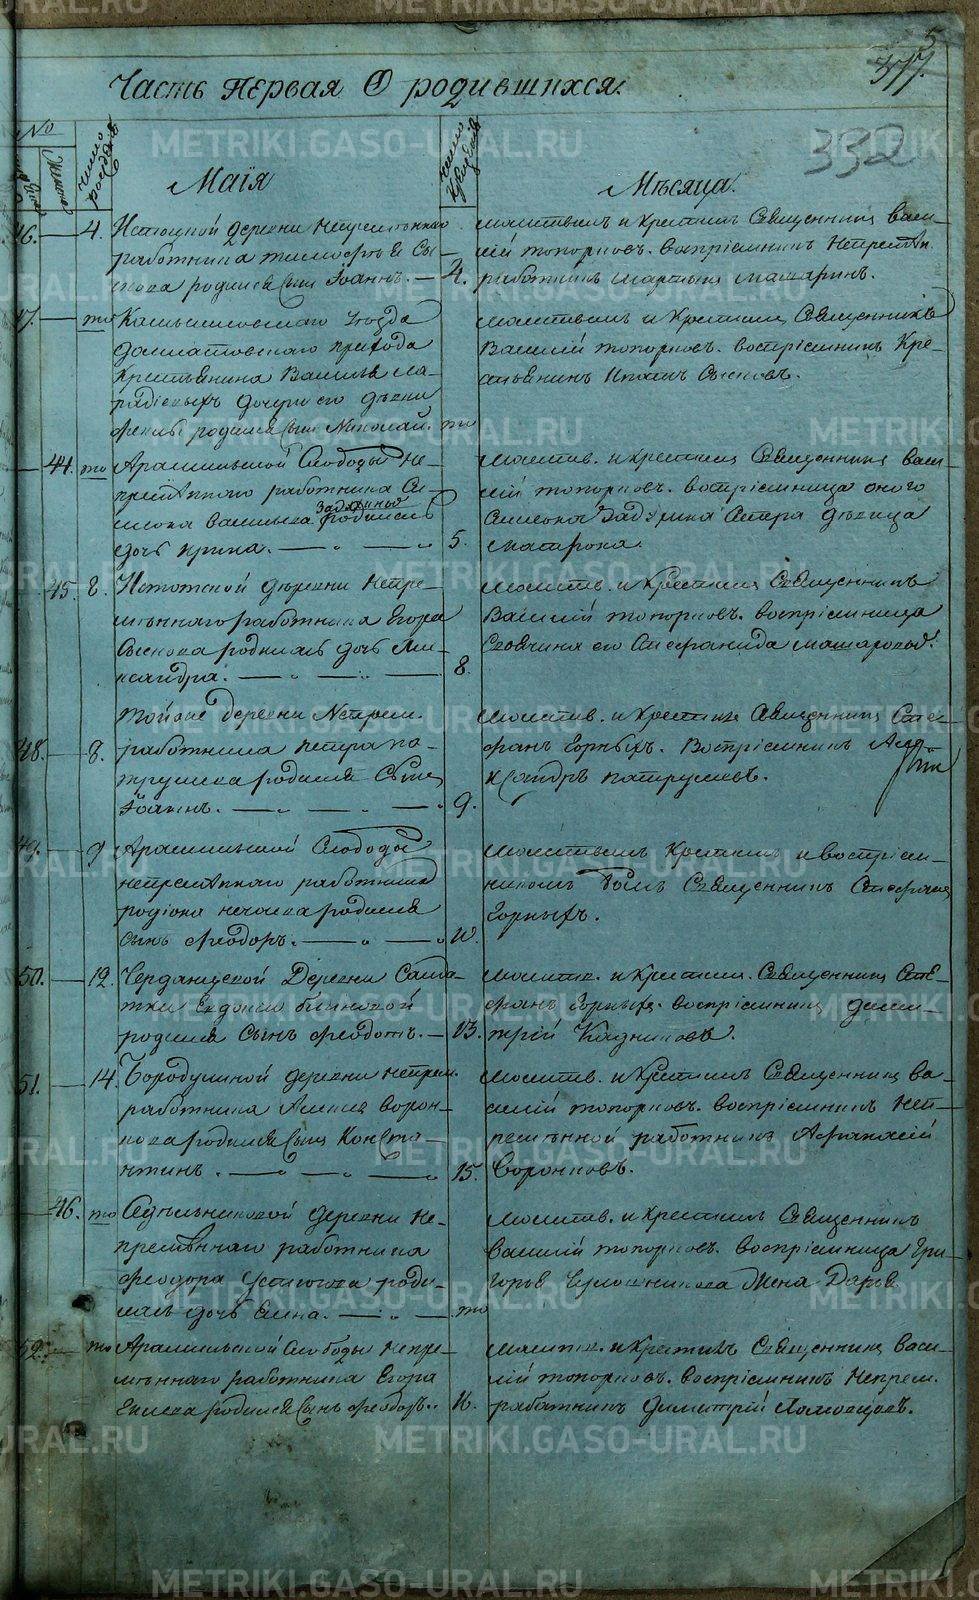 5
377.
332
Часть Первая О родившихся.
No
число рожденія
число крещенія
Маія
Мѣсяца.
46. 4. Истоцкой деревни Непремѣннаго
работника Тимофея Сы-
скова родился сынъ Іоаннъ. 4.
молитвилъ и крестилъ Священникъ Васи-
лій Топорковъ. воспріемникъ Непремѣн.
работникъ Мартынъ Машаринъ.
47. то Камышловскаго уѣзда
Далматовскаго прихода
крестьянина Василья
дочери его дѣвки
родился сынъ Николай. то
молитвилъ и крестилъ Священникъ
Василій Топорковъ. воспріемникъ Кре-
стьянинъ Игнатъ Сысковъ.
44. то Арамильской Слободы Не-
премѣннаго работника Си-
мыона Васильева Задорина родилась
дочь Ирина. 5.
молитв. и крестилъ Священникъ Васи-
лій Топорковъ. воспріемница онаго
Симеона Задорина сестра дѣвица
Матрона.
45. 8. Истокской деревни Непре-
мѣннаго работника Егора
Сыскова родилась дочь Але-
ксандра. 8.
молитв. и крестилъ Священникъ
Василій Топорковъ. воспріемница
его
48. 8. Той же деревни Непрем.
работника Петра Па-
трушева родился Сынъ
Іоаннъ. 9.
молитв. и крестилъ Священникъ Сте-
фанъ Горныхъ. Воспріемникъ Але-
ксандръ Патрушевъ.
49. 9 Арамильской Слободы
непремѣннаго работника
Родіона Нечаева родился
сынъ Феодоръ. 10.
молитвилъ крестилъ и воспріем-
никомъ былъ Священникъ Стефанъ
Горныхъ.
50. 12. Черданцевой Деревни Солда-
тки Евдокіи
родился Сынъ Феодотъ. 13.
молитв. и крестил. Священникъ Сте-
фанъ Горныхъ. воспріемникъ Дими-
трій
51. 14. Бородулиной деревни Непрем.
работника Ворон-
кова родился сынъ Конста-
нтинъ. 15.
молитв. и крестилъ Священникъ Ва-
силій Топорковъ. воспріемникъ Неп-
ремѣнной работникъ Афанасій
Воронковъ.
46. то Сѣдѣльниковой деревни Не-
премѣннаго работника
Феодора Устюгова роди-
лась дочь Анна. то
молитв. и крестилъ Священникъ
Василій Топорковъ. воспріемница Гри-
горья жена Дарья
52. то Арамильской Слободы Непре-
мѣннаго работника Егора
родился сынъ Феодоръ. 16.
молитв. и крестилъ Священникъ Васи-
лій Топорковъ. воспріемникъ Непрем.
работникъ Димитрій
METRIKI.GASO-URAL.RU